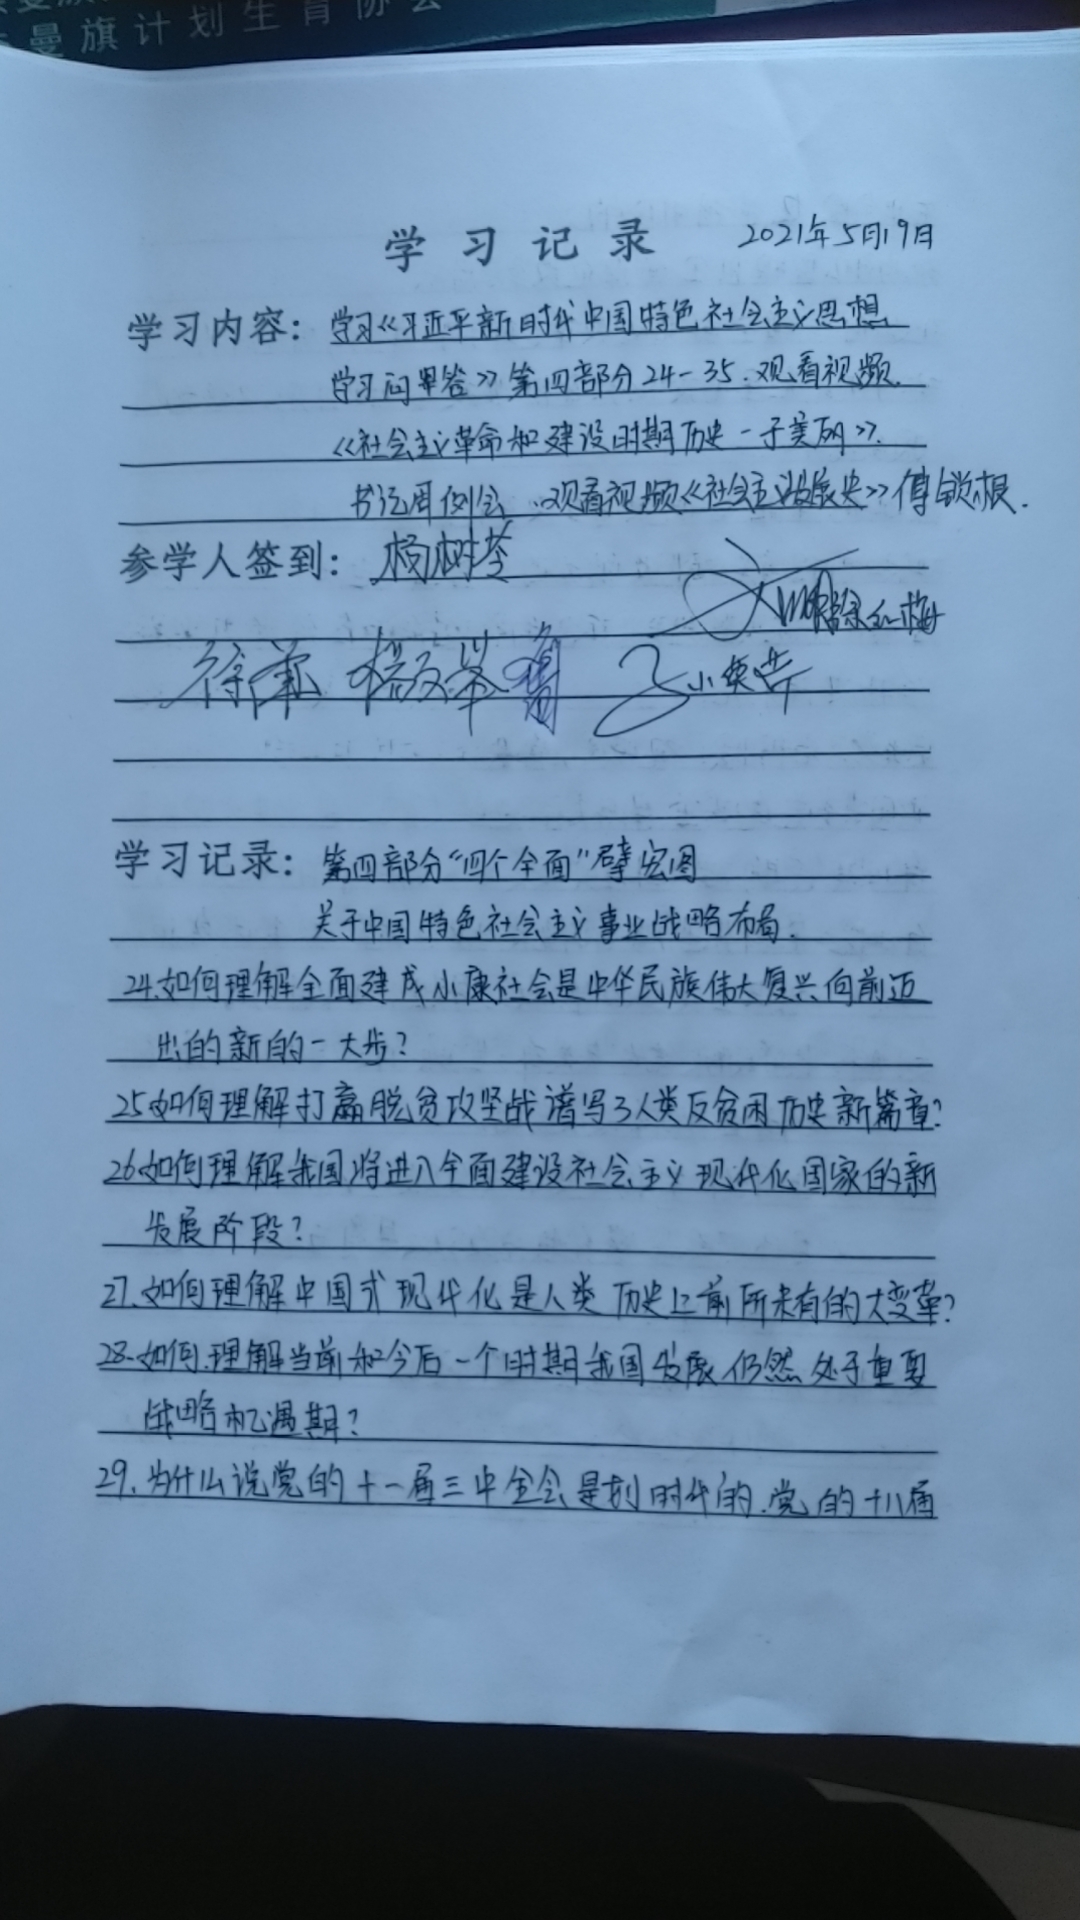 曼旗计划生育协会
学习记录 2021年5月19日
学习内容：学习《习近平新时代中国特色社会主义思想
学习问答》第四部分24-35.观看视频
《社会主义革命和建设时期历史-于美丽》.
书记周例会 观看视频《社会主义发展史》傅锁根.
参学人签到：杨树芩
徐红梅
学习记录：第四部分“四个全面”擘宏图
关于中国特色社会主义事业战略布局.
24.如何理解全面建成小康社会是中华民族伟大复兴向前迈
出的新的一大步?
25.如何理解打赢脱贫攻坚战谱写了人类反贫困历史新篇章?
26.如何理解我国将进入全面建设社会主义现代化国家的新
发展阶段?
27.如何理解中国式现代化是人类历史上前所未有的大变革?
28.如何理解当前和今后一个时期我国发展仍然处于重要
战略机遇期?
29.为什么说党的十一届三中全会是划时代的.党的十八届